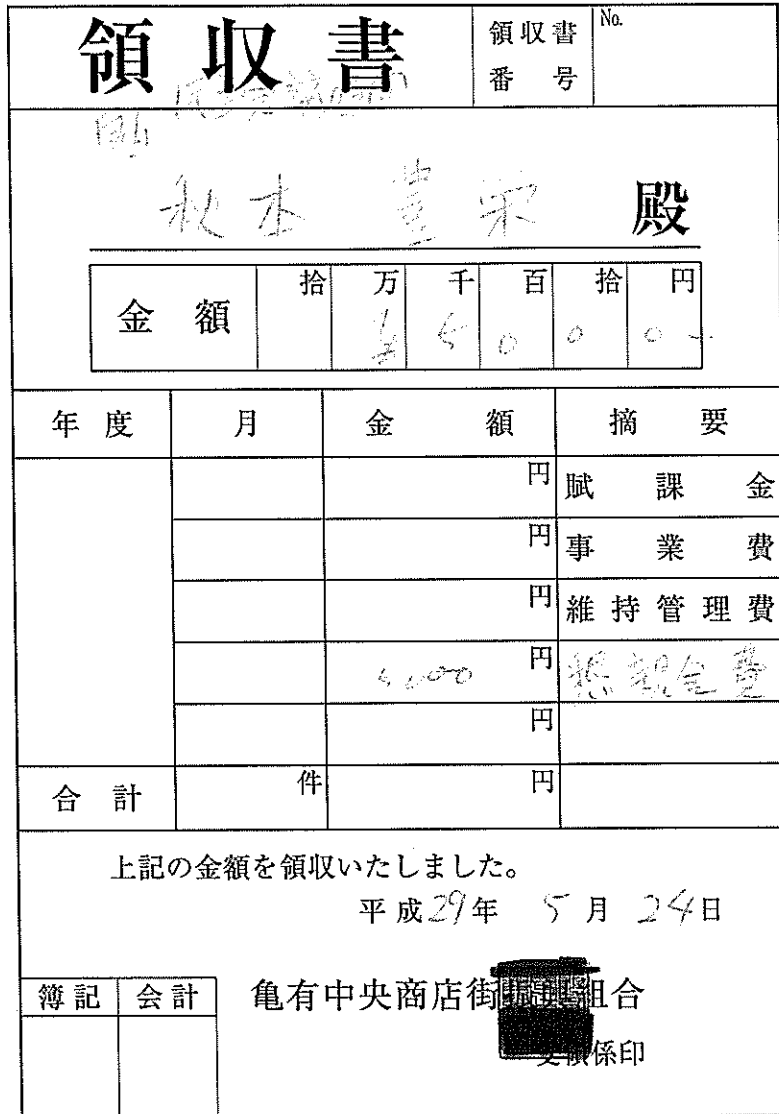 領収書
領収書番号 No.
秋本 豊栄 殿
金額 拾 万 千 百 拾 円
¥ 5 0 0 0 -
年度 月 金額 摘要
円 賦課金
円 事業費
円 維持管理費
5,000 円 懇親会費
円
合計 件 円
上記の金額を領収いたしました。
平成29年 5月 24日
簿記 会計 亀有中央商店街振興組合
係印